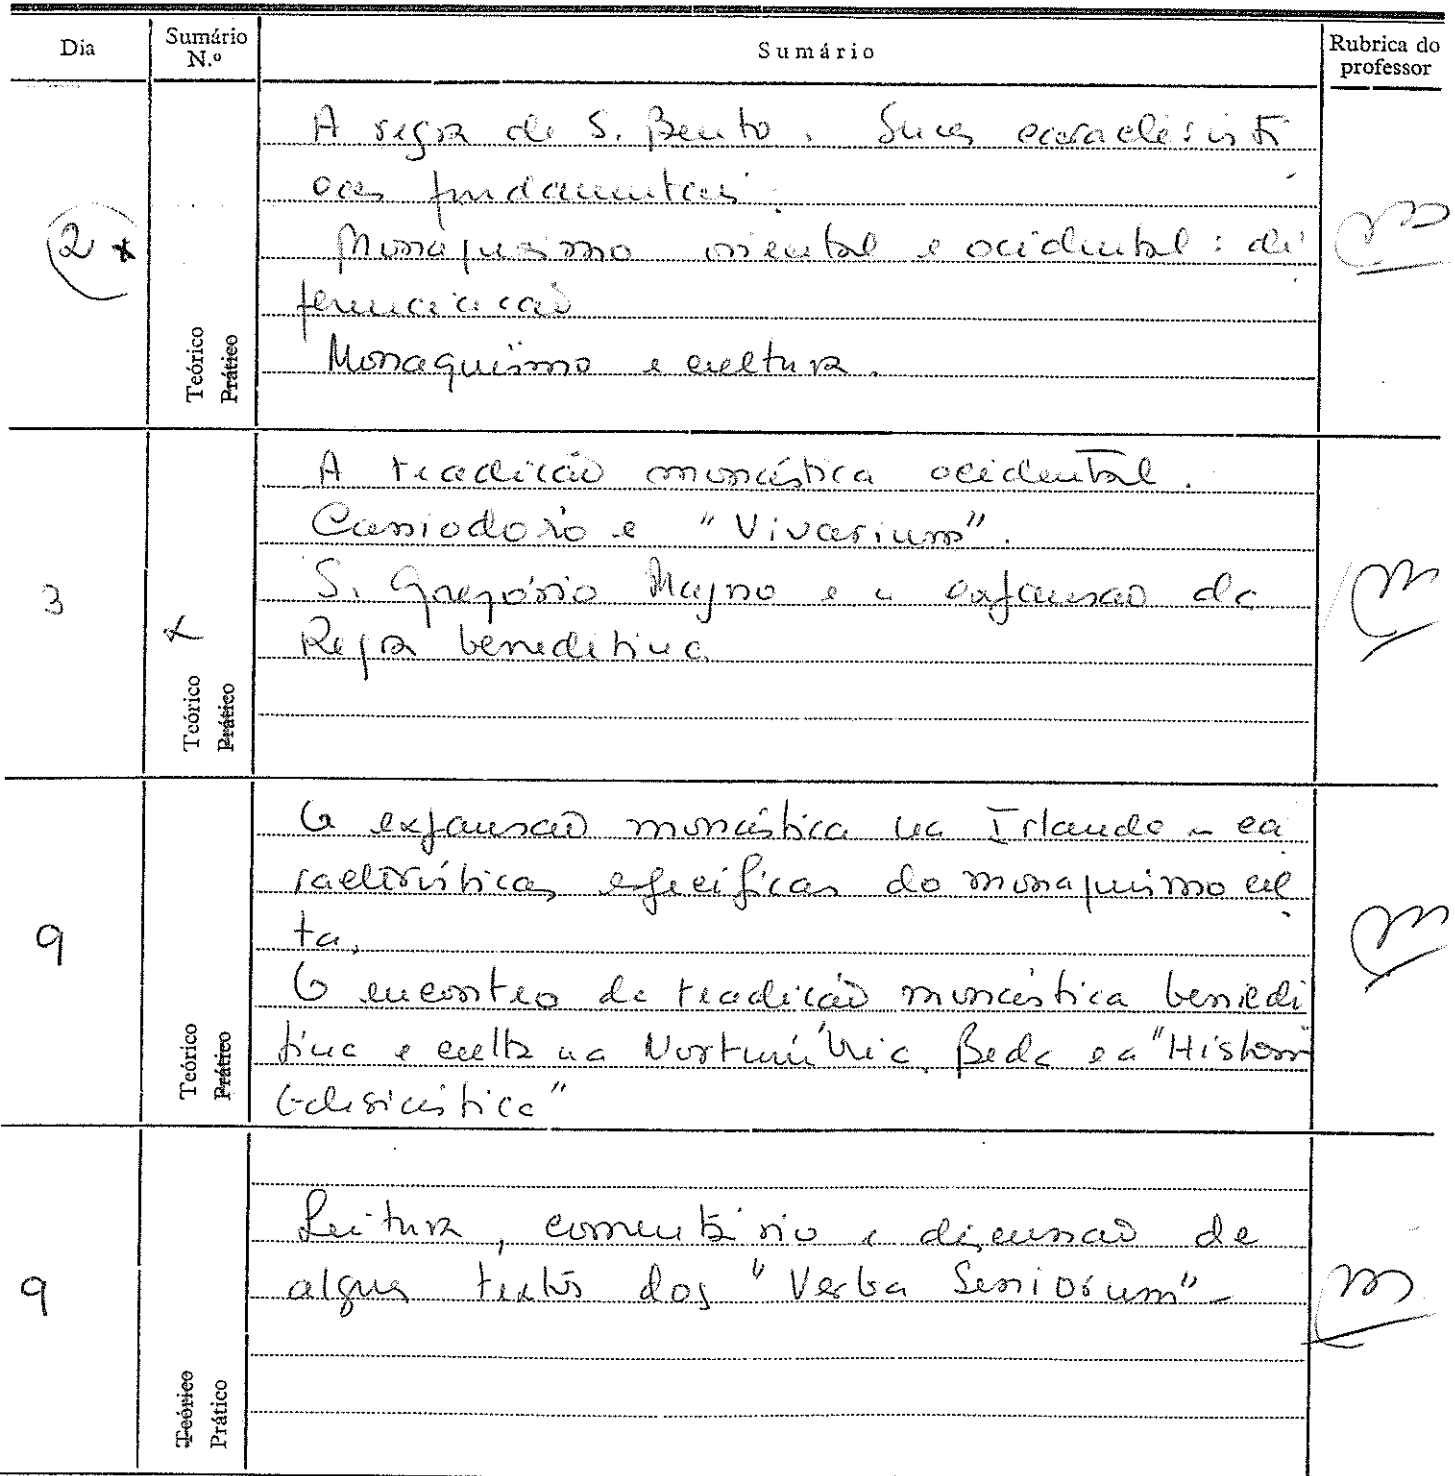 Dia
Sumário N.º
Sumário
Rubrica do professor
2 x
Teórico
Prático
A regra de S. Bento. Suas característi
cas fundamentais.
Monaquismo oriental e ocidental: di
ferenciação
Monaquismo e cultura.
3
x
Teórico
Prático
A tradição monástica ocidental.
Cassiodoro e "Vivarium".
S. Gregório Magno e a expansão da
Regra beneditina
9
Teórico
Prático
A expansão monástica na Irlanda - ca
racterísticas específicas do monaquismo cel
ta.
O encontro da tradição monástica benedi
tina e celta na Nortúmbria. Beda e a "Historia
Eclesiástica"
9
Teórico
Prático
Leitura, comentário e discussão de
alguns textos dos "Verba Seniorum" -